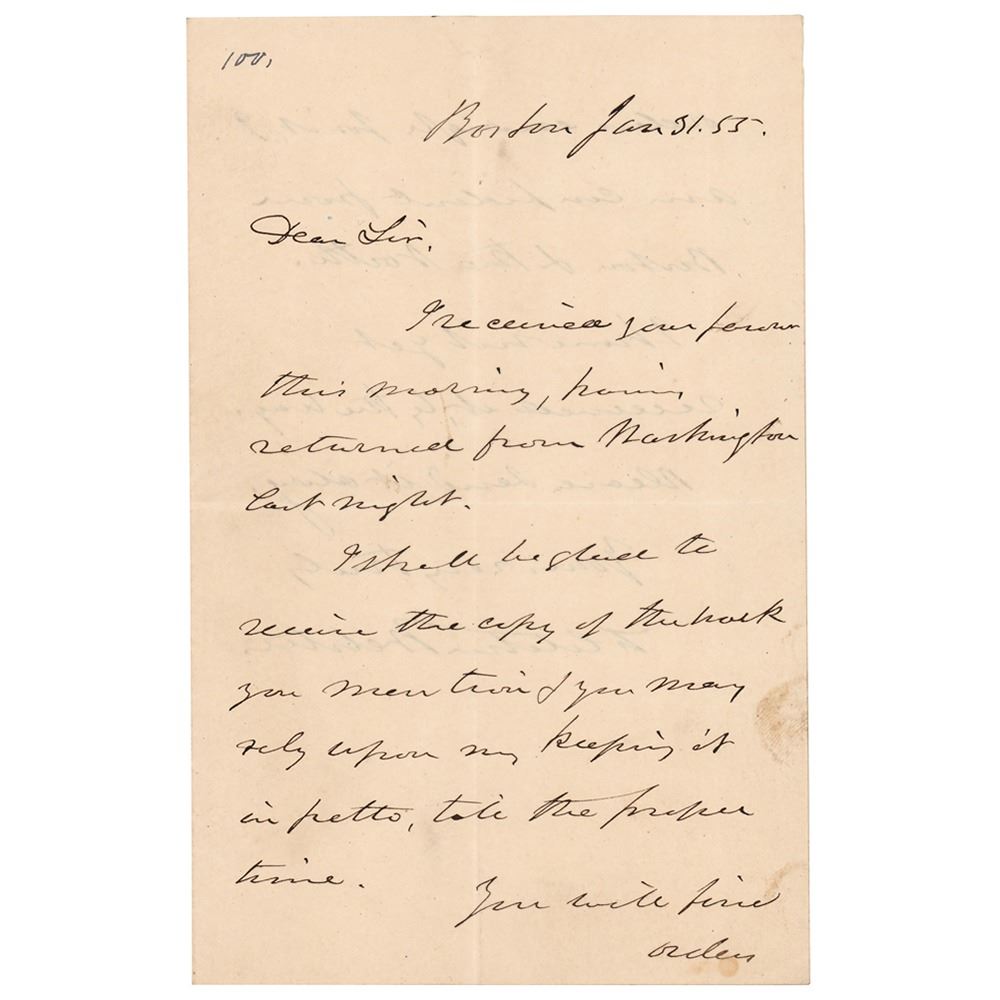 100,
Boston Jan 31. 55.
Dear Sir,
I received your favour
this morning, having
returned from Washington
last night.
I shall be glad to
receive the copy of the book
you mention & you may
rely upon my keeping it
in petto, till the proper
time.
You will find
orders